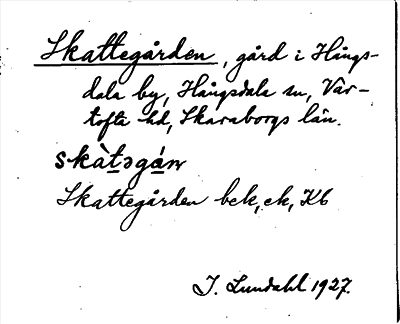 Skattegården, gård i Hångs-
dala by, Hångsdala sn, Var-
tofta hd, Skaraborgs län.
skàt̲əgán
Skattegården bek, ek, Kb
I. Lundahl 1927.